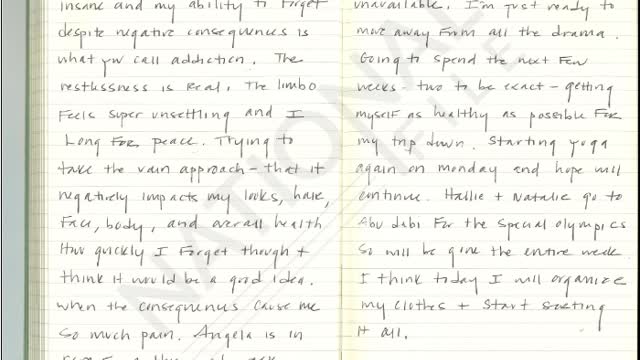 insane and my ability to forget
despite negative consequences is
what you call addiction. The
restlessness is real. The limbo
feels super unsettling and I
Long for peace. Trying to
take the vain approach - that it
negatively impacts my looks, hair,
face, body, and overall health
How quickly I forget though +
think it would be a good idea.
when the consequenus cause me
so much pain. Angela is in
unavailable. I'm just ready to
move away from all the drama.
Going to spend the next few
weeks - two to be exact - getting
myself as healthy as possible for
my trip down. Starting yoga
again on Monday and hope will
continue. Hallie + Natalie go to
Abu dabi for the special olympics
so will be gone the entire week.
I think today I will organize
my clothes + start sorting
it all.
NATIONAL
FILE